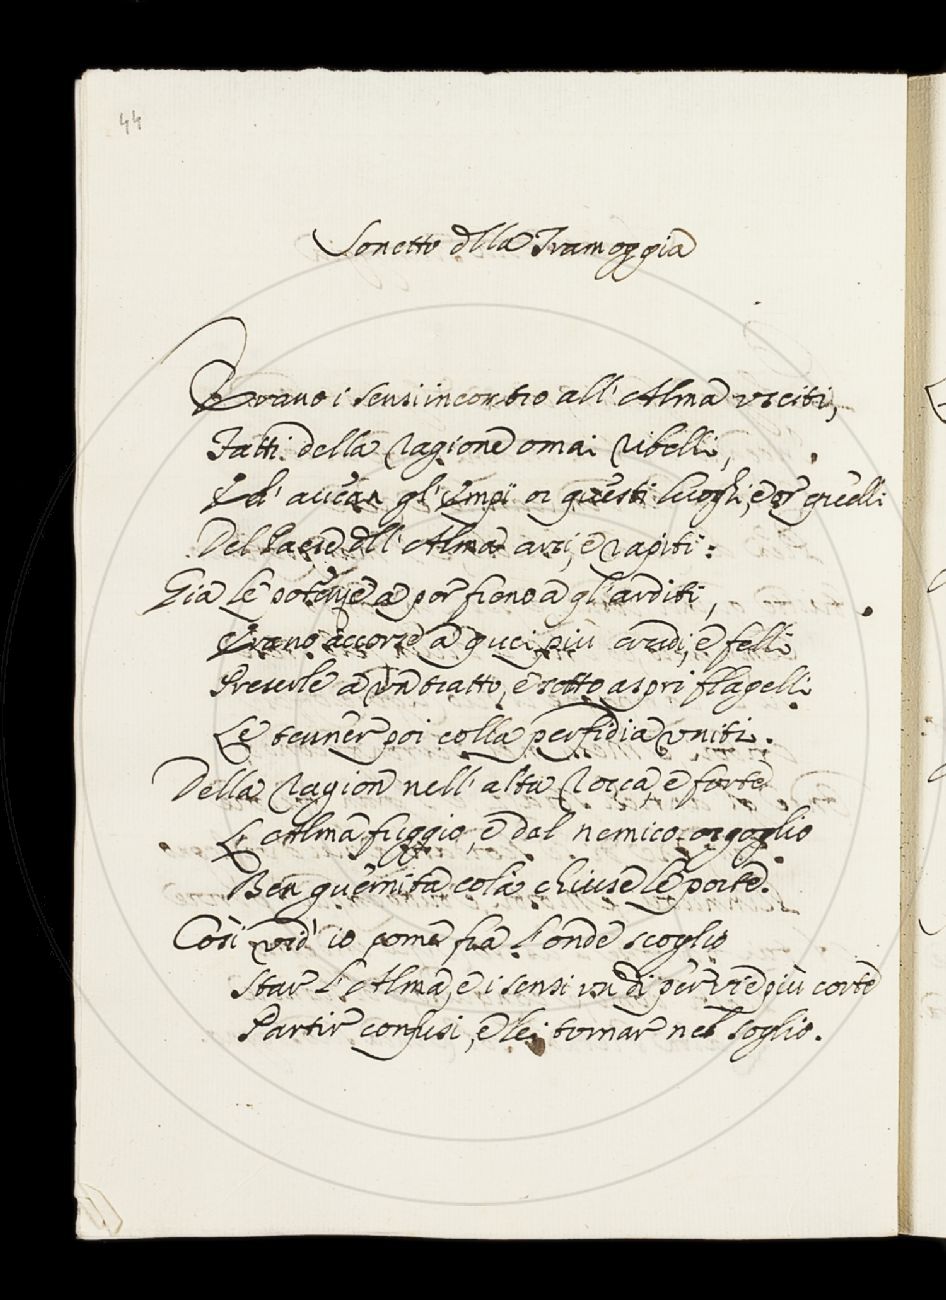 44
Sonetto dlla Tramoggia
Erano i sensi incontro all' Alma vsciti,
Fatti della ragione omai ribelli,
E d' gl' Empi or questi luoghi, e or quelli
Del Paese dll' Alma arsi, e rapiti:
Già le potenze a por freno a gl' arditi,
Erano accorse a quei più crudi, e felli
Preserle a vn tratto, e sotto aspri flagelli
Le tenner poi colla perfidia vniti.
Della ragion nell' alta rocca, e forte
L' Alma fuggio, e dal nemico orgoglio
Ben guernita colà chiuse le porte.
Così vid' io come fra l' onde scoglio
Star l' Alma, e i sensi vn dì per vie più corte
Partir confusi, e lei tornar nel soglio.